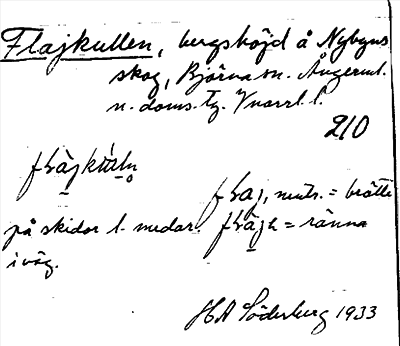 Flajkullen, bergshöjd å Nybyns
skog, Björna sn. Ångerml.
n. doms. tg. Vnorrl. l.
210
flaj, neutr. = brätte
på skidor l. medar. = ränna
iväg.
HA Söderberg 1933